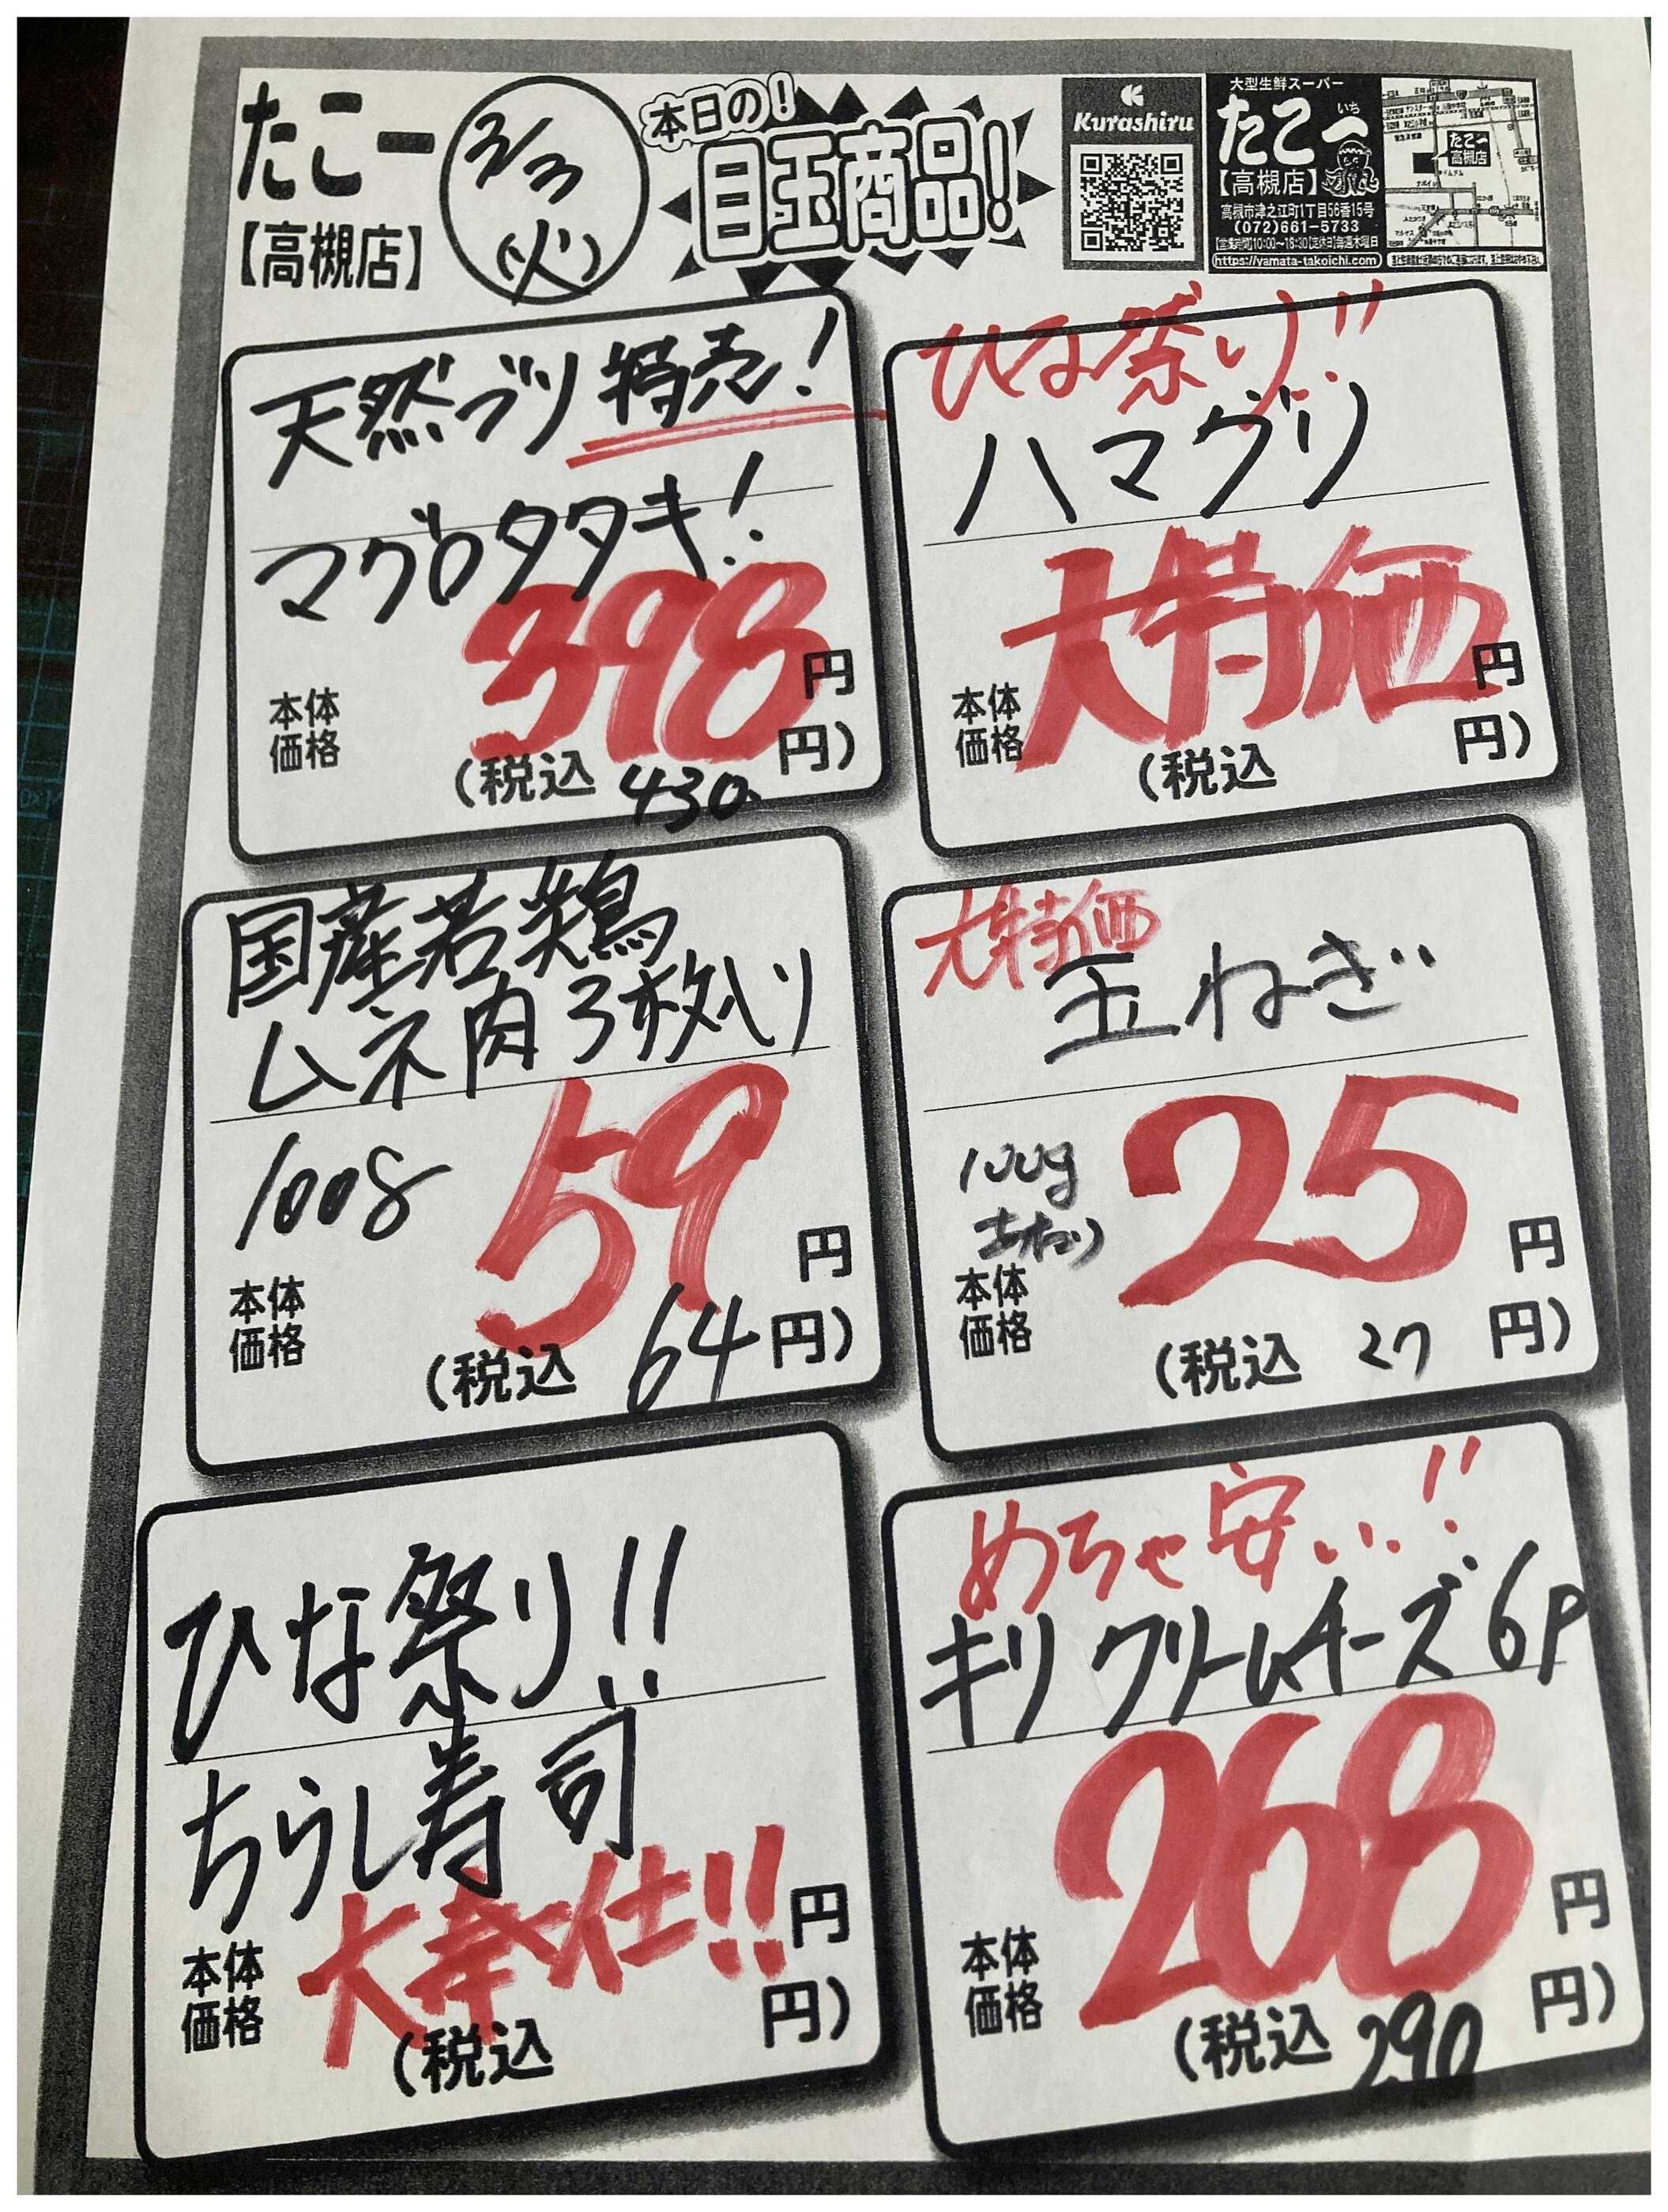 たこ一
【高槻店】
3/3
(火)
本日の!
目玉商品!
Kurashiru
大型生鮮スーパー
たこ一
いち
【高槻店】
高槻市津之江町1丁目56番15号
(072)661-5733
【営業時間】10:00〜18:30【定休日】毎週木曜日
https://yamata-takoichi.com
たこ一
高槻店
天然ブリ特売!
マグロタタキ!
398円
本体
価格
(税込 430 円)
ひな祭り!!
ハマグリ
大特価円
本体
価格
(税込 円)
国産若鶏
ムネ肉3枚入り
100g
59円
本体
価格
(税込 64円)
大特価
玉ねぎ
100g
あたり
25円
本体
価格
(税込 27 円)
ひな祭り!!
ちらし寿司
大奉仕!!円
本体
価格
(税込 円)
めちゃ安い!!
キリクリームチーズ6P
268円
本体
価格
(税込 290 円)